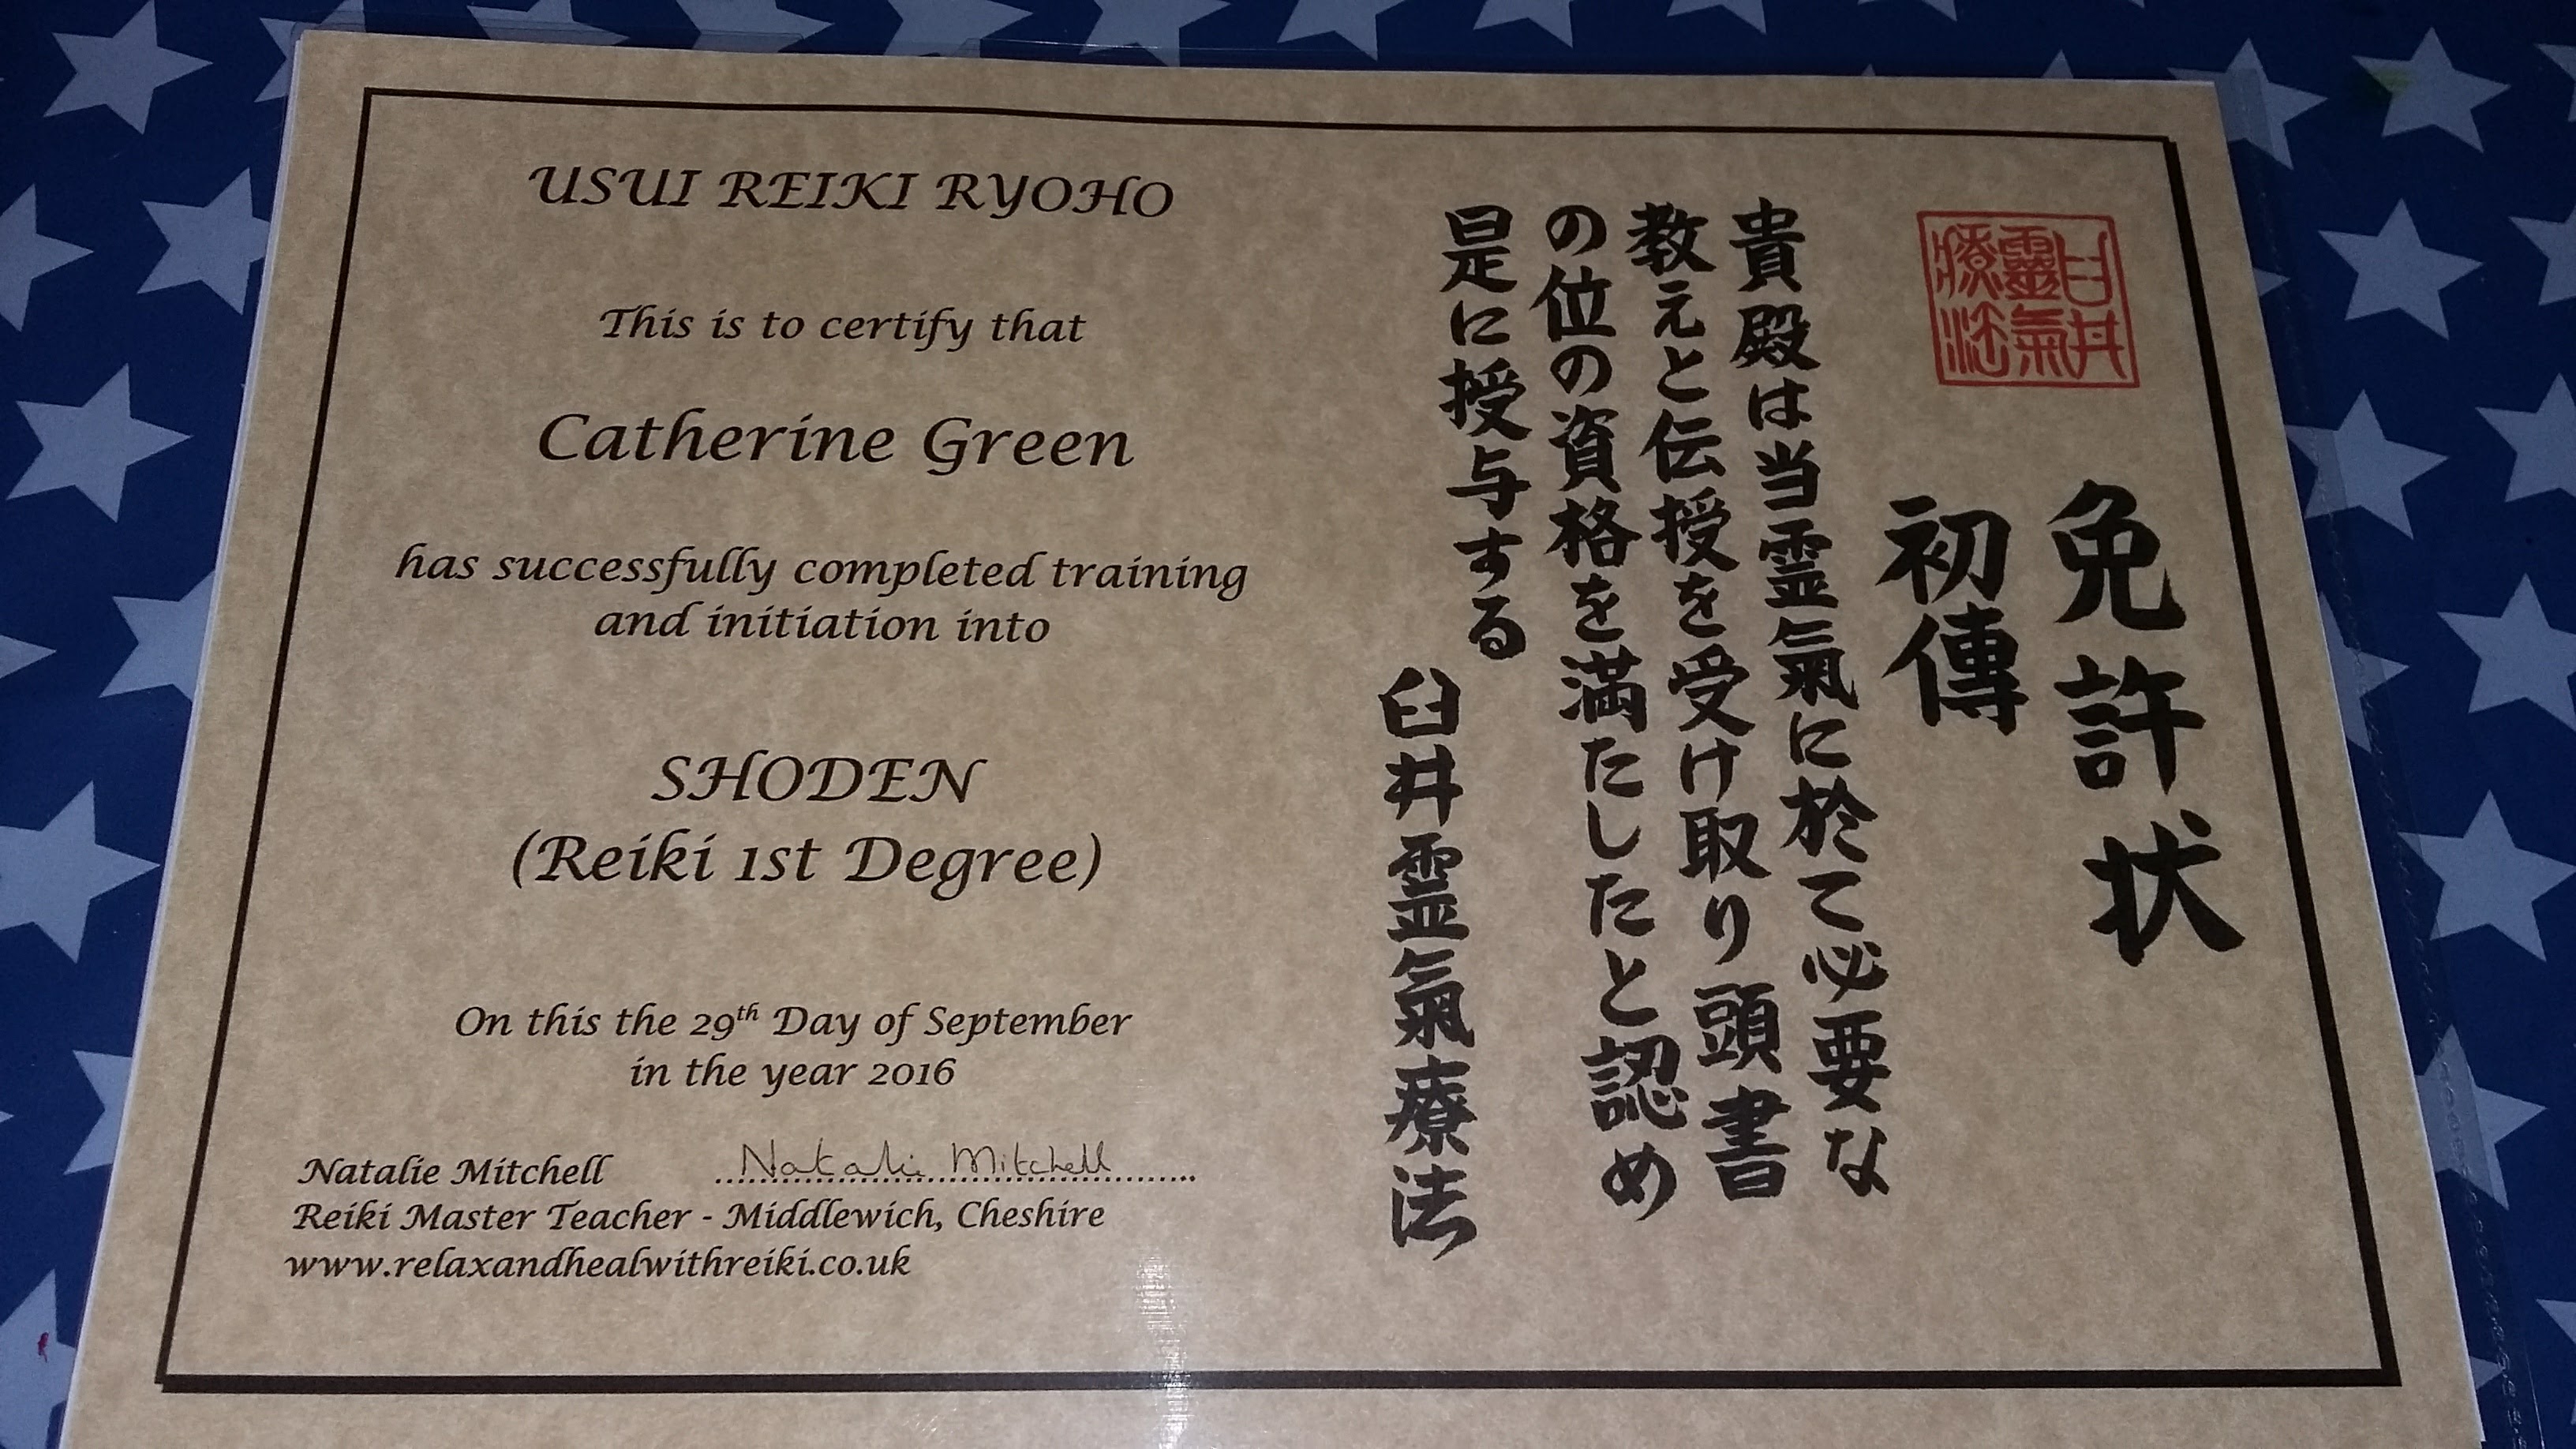 USUI REIKI RYOHO
This is to certify that
Catherine Green
has successfully completed training
and initiation into
SHODEN
(Reiki 1st Degree)
On this the 29th Day of September
in the year 2016
Natalie Mitchell Natalie Mitchell
Reiki Master Teacher - Middlewich, Cheshire
www.relaxandhealwithreiki.co.uk
臼井
靈氣
療法
免許状
初傳
貴殿は当霊氣に於て必要な
教えと伝授を受け取り頭書
の位の資格を満たしたと認め
是に授与する
臼井霊氣療法